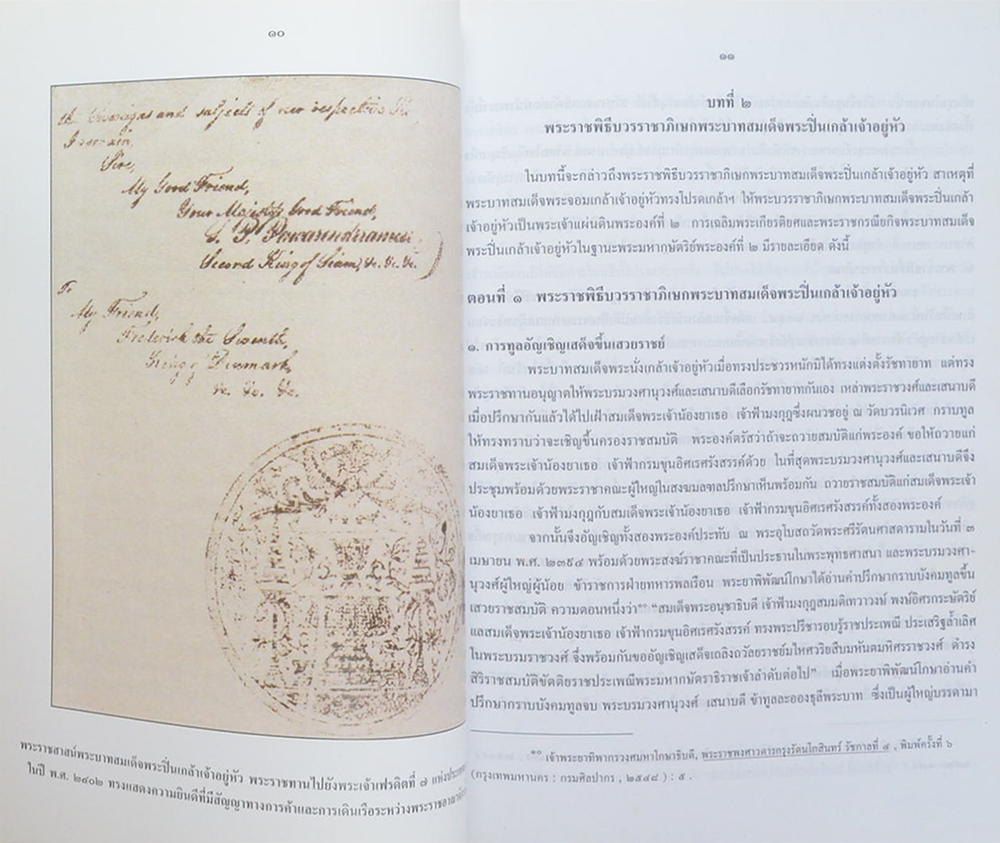 ๑๐
and subjects of our respective
Sire,
My Good Friend,
Your Majesty's Good Friend,
S. P. Pawarendramesr
Second King of Siam, &c. &c. &c.
To
My Friend,
Frederick the Seventh,
King of Denmark,
&c. &c. &c.
พระราชสาสน์พระบาทสมเด็จพระปิ่นเกล้าเจ้าอยู่หัว พระราชทานไปยังพระเจ้าเฟรดิตที่ ๗ แห่งประเทศ
ในปี พ.ศ. ๒๔๐๒ ทรงแสดงความยินดีที่มีสัญญาทางการค้าและการเดินเรือระหว่างพระราชอาณาจักร
๑๑
บทที่ ๒
พระราชพิธีบวรราชาภิเษกพระบาทสมเด็จพระปิ่นเกล้าเจ้าอยู่หัว
ในบทนี้จะกล่าวถึงพระราชพิธีบวรราชาภิเษกพระบาทสมเด็จพระปิ่นเกล้าเจ้าอยู่หัว สาเหตุที่
พระบาทสมเด็จพระจอมเกล้าเจ้าอยู่หัวทรงโปรดเกล้าฯ ให้พระบวรราชาภิเษกพระบาทสมเด็จพระปิ่นเกล้า
เจ้าอยู่หัวเป็นพระเจ้าแผ่นดินพระองค์ที่ ๒ การเฉลิมพระเกียรติยศและพระราชกรณียกิจพระบาทสมเด็จ
พระปิ่นเกล้าเจ้าอยู่หัวในฐานะพระมหากษัตริย์พระองค์ที่ ๒ มีรายละเอียด ดังนี้
ตอนที่ ๑ พระราชพิธีบวรราชาภิเษกพระบาทสมเด็จพระปิ่นเกล้าเจ้าอยู่หัว
๑. การทูลอัญเชิญเสด็จขึ้นเสวยราชย์
พระบาทสมเด็จพระนั่งเกล้าเจ้าอยู่หัวเมื่อทรงประชวรหนักมิได้ทรงแต่งตั้งรัชทายาท แต่ทรง
พระราชทานอนุญาตให้พระบรมวงศานุวงศ์และเสนาบดีเลือกรัชทายาทกันเอง เหล่าพระราชวงศ์และเสนาบดี
เมื่อปรึกษากันแล้วได้ไปเฝ้าสมเด็จพระเจ้าน้องยาเธอ เจ้าฟ้ามงกุฎซึ่งผนวชอยู่ ณ วัดบวรนิเวศ กราบทูล
ให้ทรงทราบว่าจะเชิญขึ้นครองราชสมบัติ พระองค์ตรัสว่าถ้าจะถวายสมบัติแก่พระองค์ ขอให้ถวายแก่
สมเด็จพระเจ้าน้องยาเธอ เจ้าฟ้ากรมขุนอิศเรศรังสรรค์ด้วย ในที่สุดพระบรมวงศานุวงศ์และเสนาบดีจึง
ประชุมพร้อมด้วยพระราชาคณะผู้ใหญ่ในสงฆมลฑลปรึกษาเห็นพร้อมกัน ถวายราชสมบัติแก่สมเด็จพระเจ้า
น้องยาเธอ เจ้าฟ้ามงกุฎกับสมเด็จพระเจ้าน้องยาเธอ เจ้าฟ้ากรมขุนอิศเรศรังสรรค์ทั้งสองพระองค์
จากนั้นจึงอัญเชิญทั้งสองพระองค์ประทับ ณ พระอุโบสถวัดพระศรีรัตนศาสดารามในวันที่ ๓
เมษายน พ.ศ. ๒๓๙๔ พร้อมด้วยพระสงฆ์ราชาคณะที่เป็นประธานในพระพุทธศาสนา และพระบรมวงศา-
นุวงศ์ผู้ใหญ่ผู้น้อย ข้าราชการฝ่ายทหารพลเรือน พระยาพิพัฒน์โกษาได้อ่านคำปรึกษากราบบังคมทูลขึ้น
เสวยราชสมบัติ ความตอนหนึ่งว่า๑๐ "สมเด็จพระอนุชาธิบดี เจ้าฟ้ามงกุฎสมมติเทวาวงษ์ พงษ์อิศรกระษัตริย์
แลสมเด็จพระเจ้าน้องยาเธอ เจ้าฟ้ากรมขุนอิศเรศรังสรรค์ ทรงพระปรีชารอบรู้ราชประเพณี ประเสริฐล้ำเลิศ
ในพระบรมราชวงศ์ จึ่งพร้อมกันขออัญเชิญเสด็จเถลิงถวัลยราชย์มไหศวริยสืบมหันตมหิศรราชวงศ์ ดำรง
สิริราชสมบัติขัตติยราชประเพณีพระมหากษัตราธิราชเจ้าลำดับต่อไป" เมื่อพระยาพิพัฒน์โกษาอ่านคำ
ปรึกษากราบบังคมทูลจบ พระบรมวงศานุวงศ์ เสนาบดี ข้าทูลละอองธุลีพระบาท ซึ่งเป็นผู้ใหญ่บรรดามา
๑๐ เจ้าพระยาทิพากรวงศมหาโกษาธิบดี, พระราชพงศาวดารกรุงรัตนโกสินทร์ รัชกาลที่ ๔ , พิมพ์ครั้งที่ ๖
(กรุงเทพมหานคร : กรมศิลปากร , ๒๕๔๘ ) : ๕ .